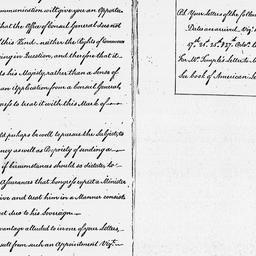 mmunication will give you an Opportu
that the Office of Consul General does not
this Kind. neither the Rights of Commerce
ing in Question, and therefore that it
to his Majesty rather than a Sense of
an Application from a Consul General,
ress to treat it with this Mark of
ld perhaps be well to pursue the Subject, to
ncy as well as Propriety of sending a
if Circumstances should so dictate, to
Assurances that Congress expect a Minister
ive and treat him in a Manner consiste
ct due to his Sovereign.
vantage alluded to in one of your Letters,
sult from such an Appointment Vizt.
Your Letters of the follow
Dates are arrived. Vizt.
17th. 21. 25. & 27th. Octr.
For Mr. Temple's Letter to
See book of American L